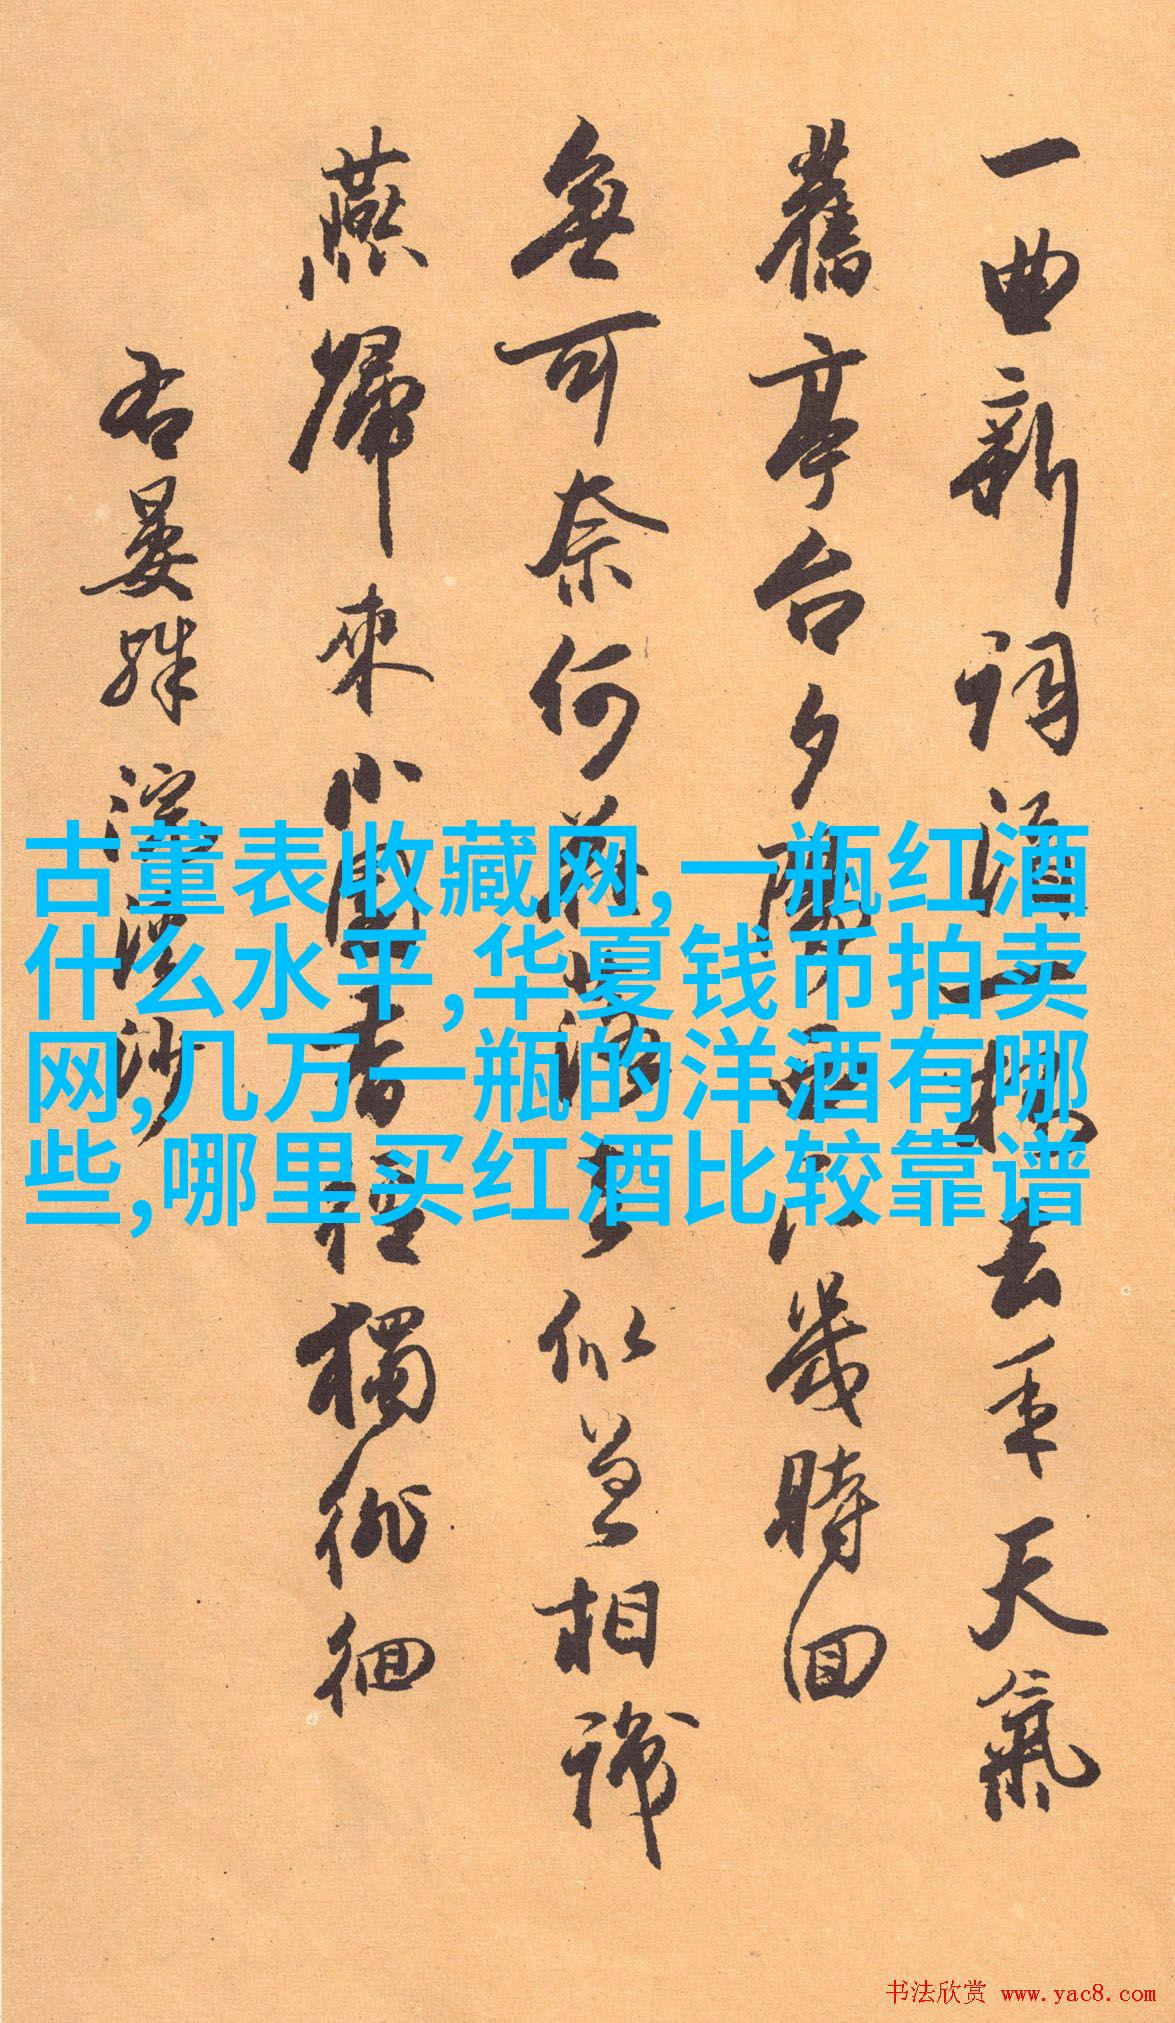 一曲新詞酒一杯去年天氣
舊亭台夕陽西下幾時回
無可奈何花落去似曾相識
燕歸來小園香徑獨徘徊
右晏殊浣溪沙
古董表收藏网,一瓶红酒
什么水平,华夏钱币拍卖
网,几万一瓶的洋酒有哪
些,哪里买红酒比较靠谱
书法欣赏 www.yac8.com